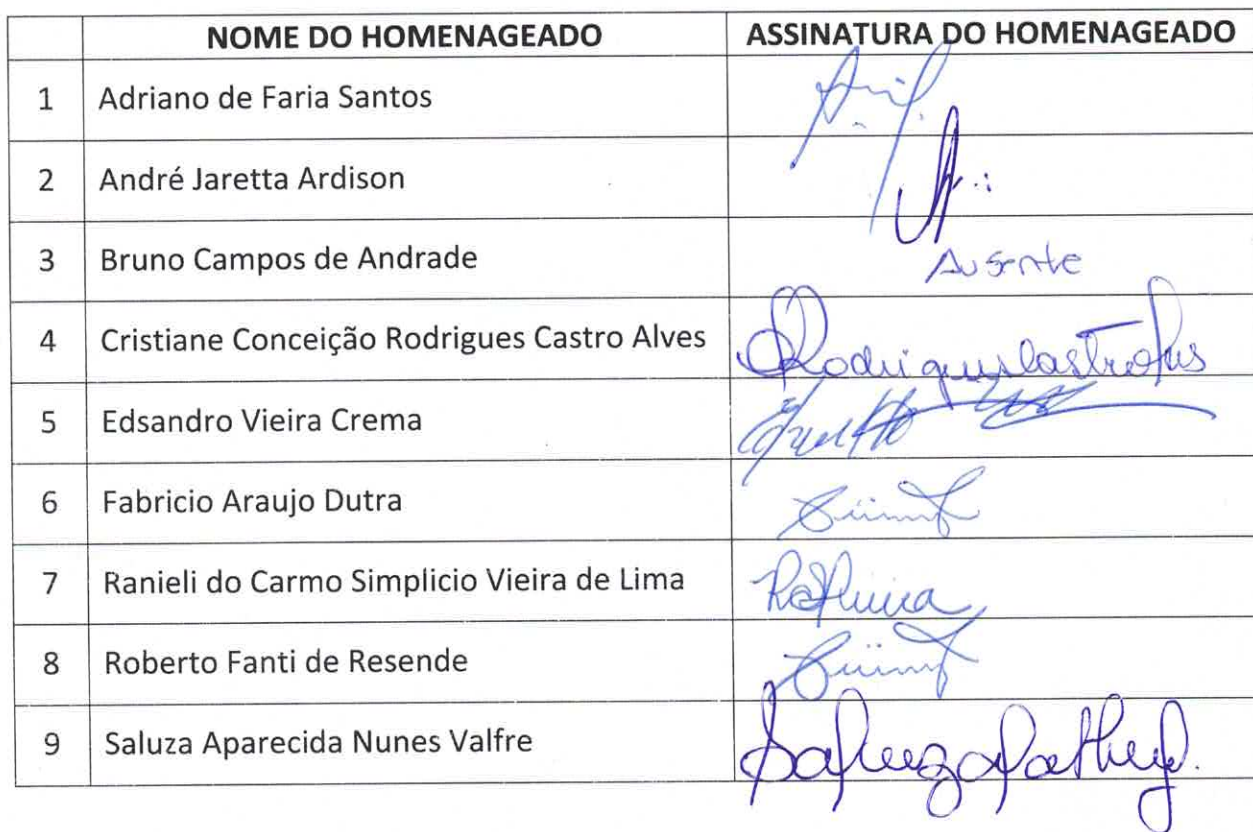 NOME DO HOMENAGEADO ASSINATURA DO HOMENAGEADO
1 Adriano de Faria Santos
2 André Jaretta Ardison
3 Bruno Campos de Andrade Ausente
4 Cristiane Conceição Rodrigues Castro Alves
5 Edsandro Vieira Crema
6 Fabricio Araujo Dutra
7 Ranieli do Carmo Simplicio Vieira de Lima
8 Roberto Fanti de Resende
9 Saluza Aparecida Nunes Valfre